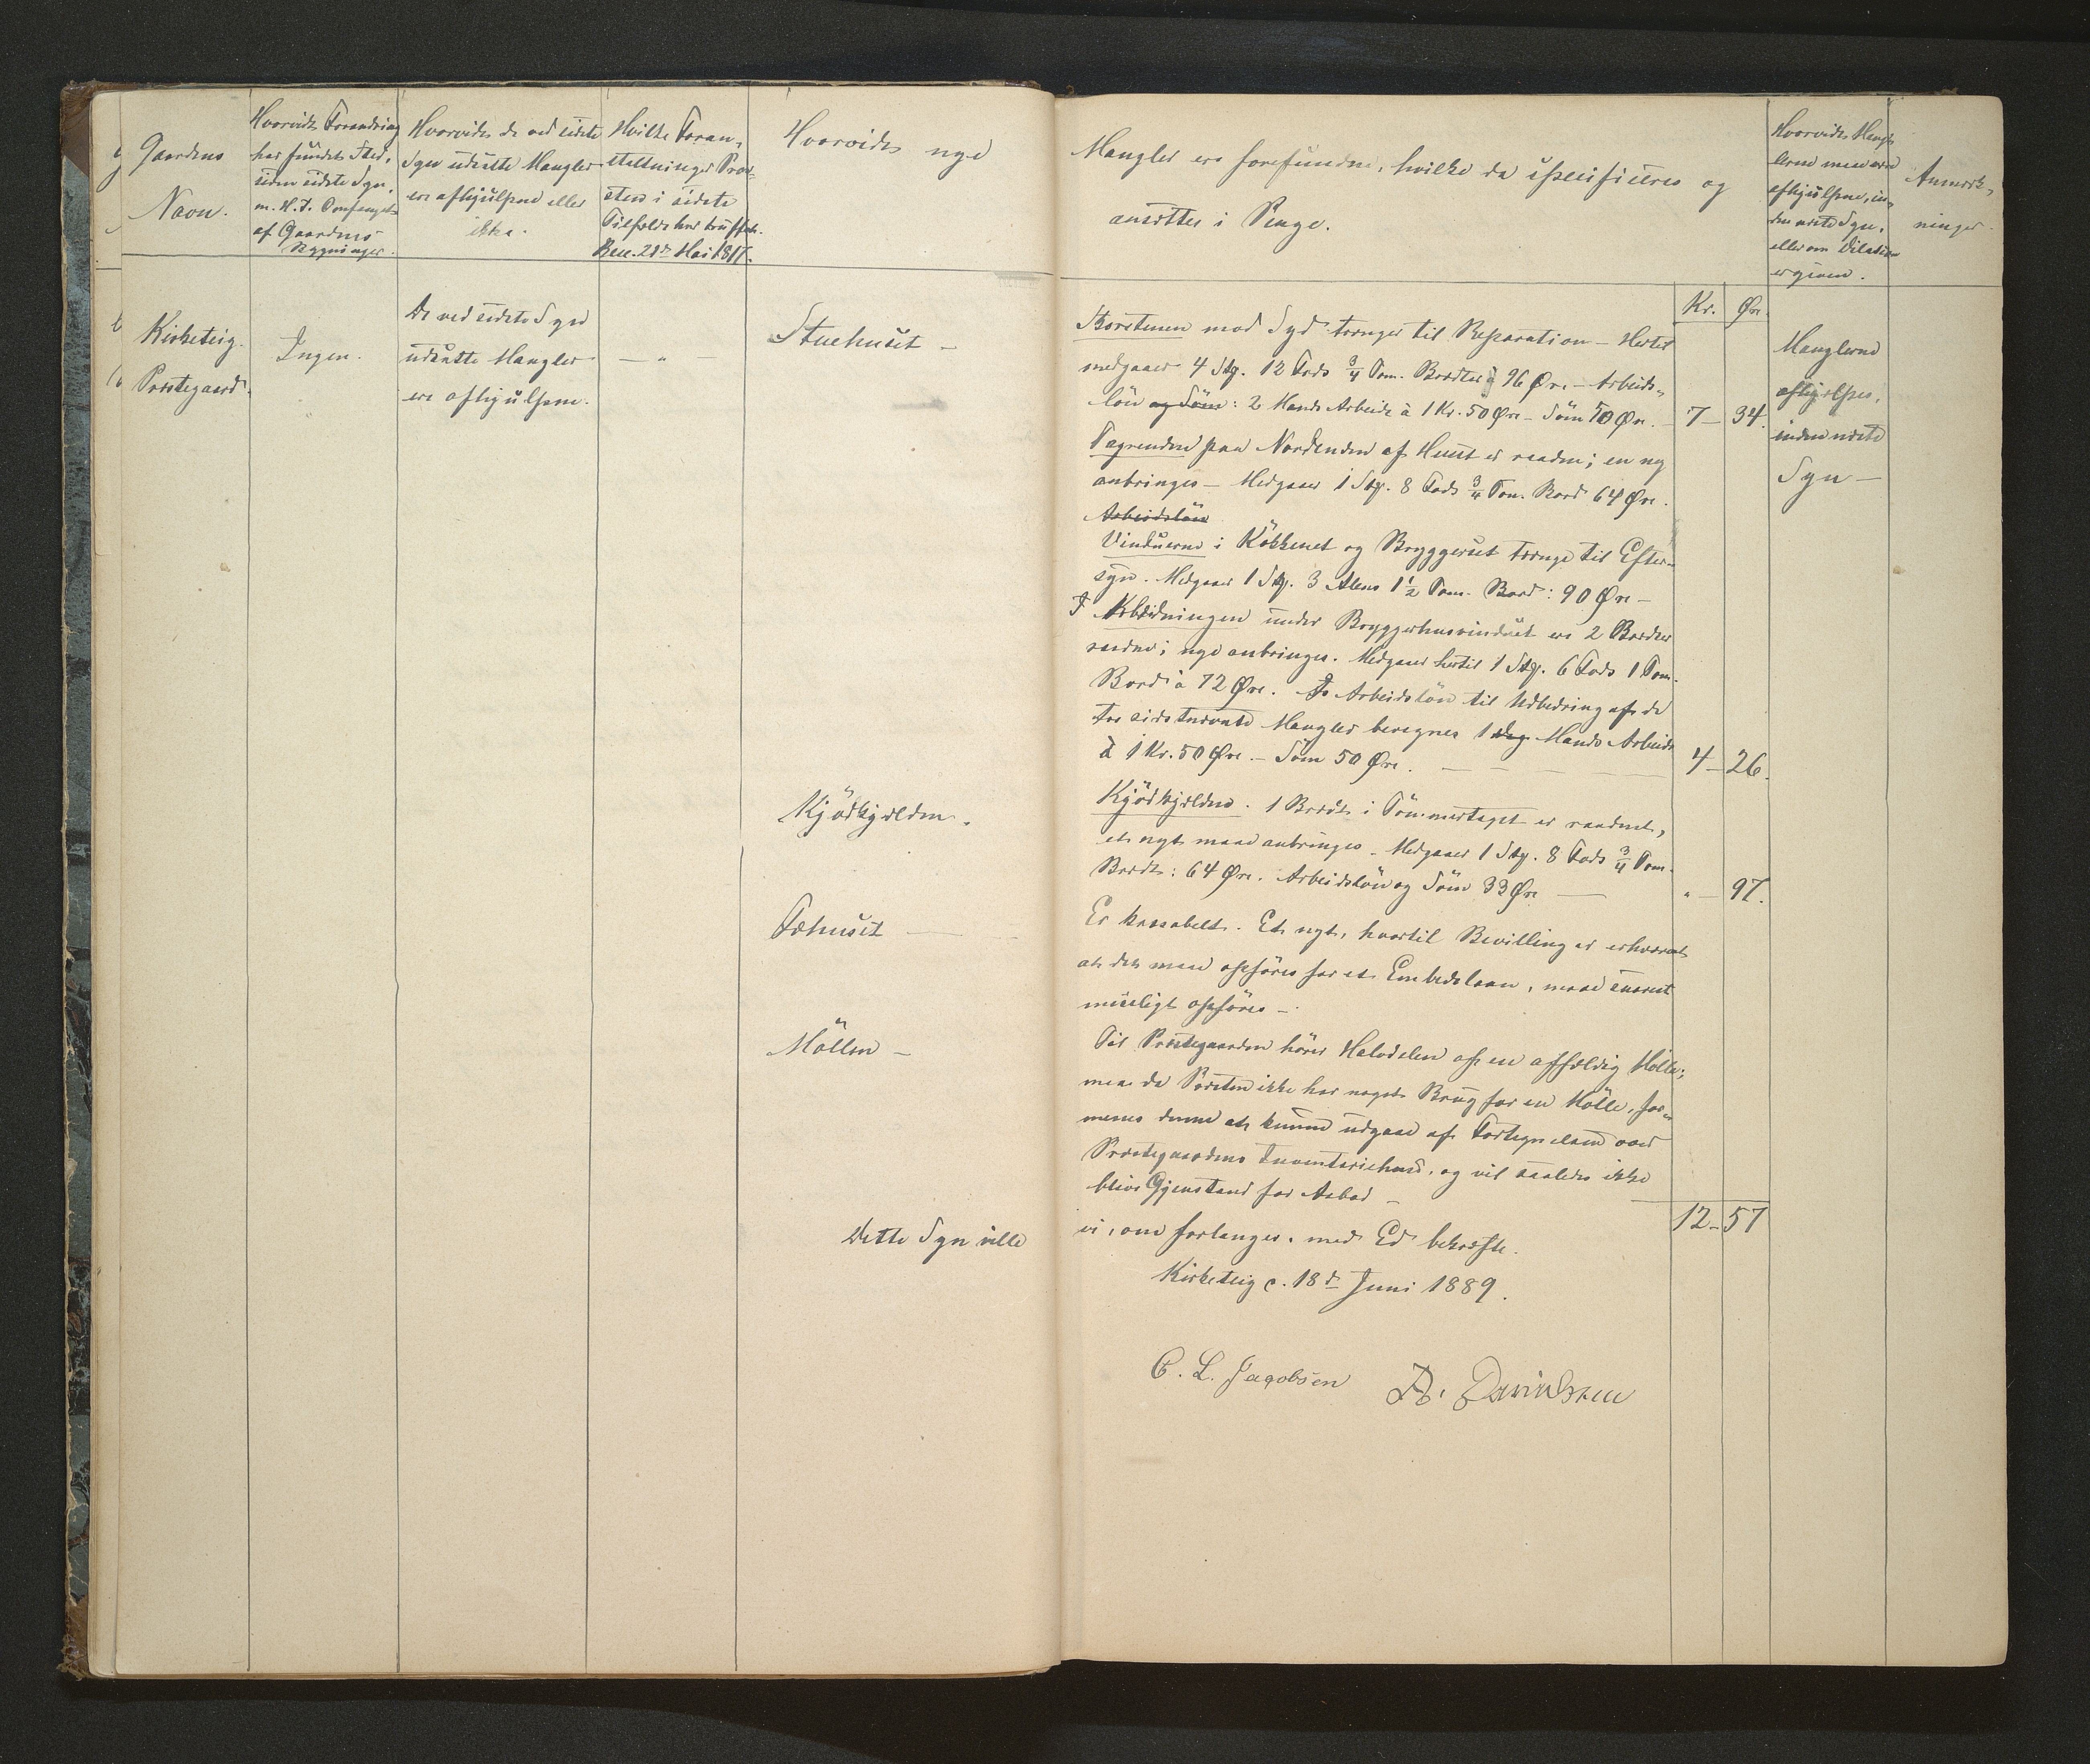 Gaardens
Navn.
Hvorvidt Forandring
har fundet Sted,
siden sidste Syn,
m. H. T. Omfanget
af Gaardens
Bygninger.
Hvorvidt de ved sidste
Syn udsatte Mangler
ere afhjulpne eller
ikke.
Hvilke Foran-
staltninger Prov-
sten i sidste
Tilfælde har truffet.
Resc. 21de Mai 1817.
Hvorvidt nye
Mangler ere forefundne, hvilke da specificeres og
ansættes i Penge.
Hvorvidt Mang-
lerne maa være
afhjulpne, in-
den næste Syn,
eller om Dilation
er given.
Anmærk-
ninger.
Kr. Øre.
Kirketeig
Præstegaard.
Ingen.
De ved sidste Syn
udsatte Mangler
ere afhjulpne.
— "
Stuehuset —
Skorstenen mod Syd trænger til Reparation — Hertil
medgaaer 4 Stkr. 12 Fods 3/4 Tom. Bordter à 96 Øre — Arbeids-
løn og Søm: 2 Mands Arbeide à 1 Kr. 50 Øre — Søm 50 Øre. 7 — 34.
Tagrenden paa Nordenden af Huset er raaden; en ny
anbringes — Medgaaer 1 Stkr. 8 Fods 3/4 Tom. Bord 64 Øre.
Arbeidsløn
Vinduerne i Køkkenet og Bryggerset trænge til Efter-
syn. Medgaaer 1 Stkr. 3 Alens 1 1/2 Tom. Bord: 90 Øre —
I Klædningen under Bryggerhusvinduet ere 2 Bordter
raadne; nye anbringes. Medgaaer hertil 1 Stkr. 6 Fods 1 Tom.
Bord à 72 Øre. Arbeidsløn til Udbedring af de
tre sidstnævnte Mangler beregnes 1 Dag Mands Arbeide
à 1 Kr. 50 Øre. — Søm 50 Øre. 4 — 26.
Manglerne
afhjelpes,
inden næste
Syn —
Kjødkjelderen.
Kjødkjelderen. 1 Bordt i Tømmertaget er raadnet,
et nyt maa anbringes. Medgaaer 1 Stkr. 8 Fods 3/4 Tom.
Bordt: 64 Øre. Arbeidsløn og Søm 33 Øre — " — 97.
Fæhuset —
Er kassabelt. Et nyt, hvortil Bevilling er erhvervet
at det maa opføres for et Embedslaan, maa snarest
muligt opføres —
Møllen —
Til Præstegaarden hører Halvdelen af en affældig Mølle;
men da Præsten ikke har noget Brug for en Mølle, for-
menes denne at kunne udgaae af Fortegnelsen over
Præstegaardens Inventariehuse, og vil saaledes ikke
blive Gjenstand for Aabod —
12 — 57
Dette Syn ville
vi, om forlanges, med Ed bekræfte.
Kirketeig c. 18de Juni 1889.
C. L. Jacobsen A. Davidsen